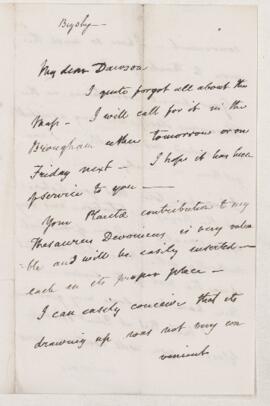 Bigsby
My dear Dawson
I quite forgot all about the
Map - I will call for it in the
Brougham either tomorrow or on
Friday next - I hope it has been
of service to you -
Your contribution to my
Thesaurus Devonicus is very valua
ble and will be easily inserted -
each in its proper place -
I can easily conceive that its
drawing up was not very con
venient